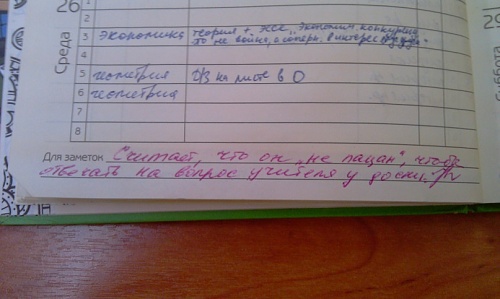 26
1
2
Среда
3 экономика теория + эссе „Экономич. конкуренц.
то не война, а
5 геометрия Д/З на листе в
6 геометрия
7
8
Для заметок Считает, что он „не пацан", чтобы
отвечать на вопрос учителя у доски.
29